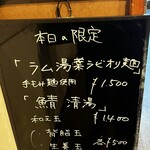 本日の限定
「ラム湯葉ラビオリ麺」
手もみ麺使用 ¥1,500
「鯖 清湯」
和え玉 ¥1400
生姜玉 各¥500